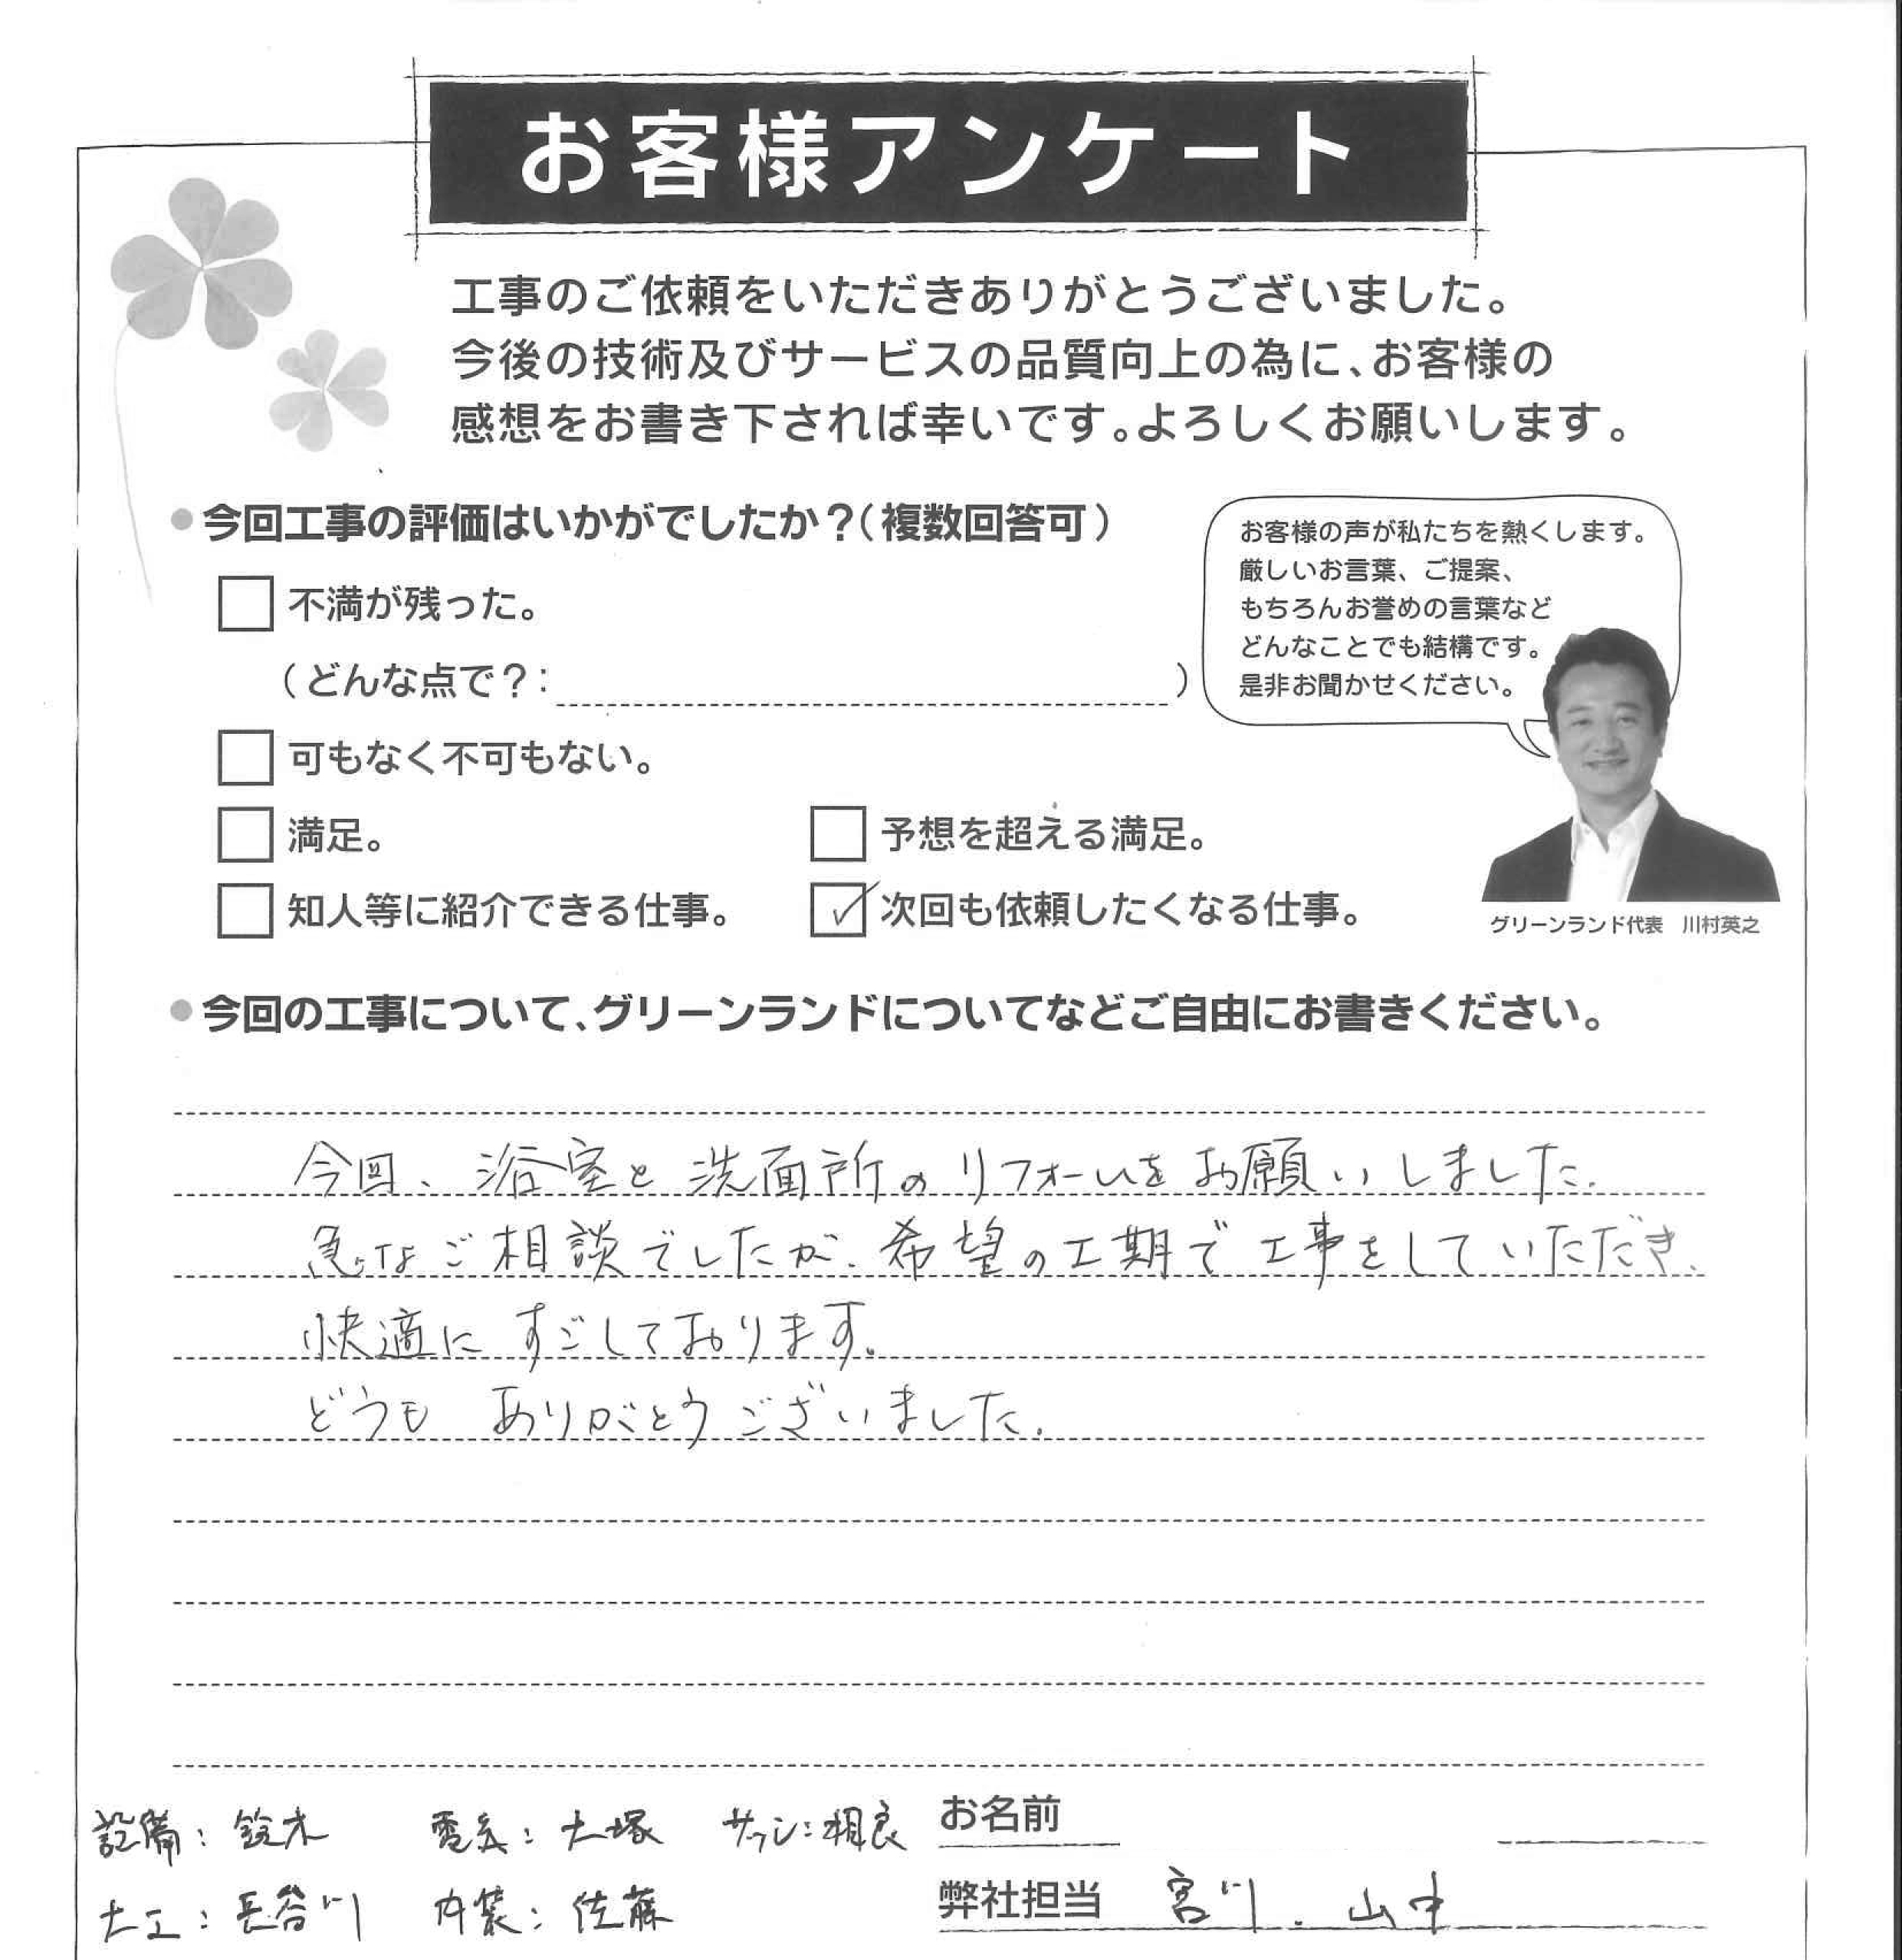 お客様アンケート
工事のご依頼をいただきありがとうございました。
今後の技術及びサービスの品質向上の為に、お客様の
感想をお書き下されば幸いです。よろしくお願いします。
●今回工事の評価はいかがでしたか?(複数回答可)
お客様の声が私たちを熱くします。
厳しいお言葉、ご提案、
もちろんお誉めの言葉など
どんなことでも結構です。
是非お聞かせください。
不満が残った。
(どんな点で?: )
可もなく不可もない。
満足。
予想を超える満足。
知人等に紹介できる仕事。
次回も依頼したくなる仕事。
グリーンランド代表 川村英之
●今回の工事について、グリーンランドについてなどご自由にお書きください。
今回、浴室と洗面所のリフォームをお願いしました.
急なご相談でしたが、希望の工期で工事をしていただき、
快適にすごしております。
どうもありがとうございました.
設備:鈴木 電気:大塚 サッシ:相良
お名前
大工:長谷川 内装:佐藤
弊社担当 宮川. 山中